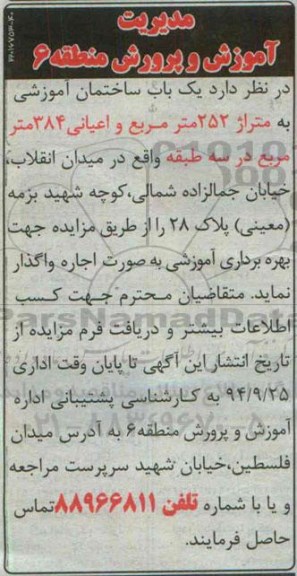 مدیریت
آموزش و پرورش منطقه ۶
در نظر دارد یک باب ساختمان آموزشی
به متراژ ۲۵۲متر مربع و اعیانی۳۸۴متر
مربع در سه طبقه واقع در میدان انقلاب،
خیابان جمالزاده شمالی،کوچه شهید بزمه
(معینی) پلاک ۲۸ را از طریق مزایده جهت
بهره برداری آموزشی به صورت اجاره واگذار
نماید. متقاضیان محترم جهت کسب
اطلاعات بیشتر و دریافت فرم مزایده از
تاریخ انتشار این آگهی تا پایان وقت اداری
۹۴/۹/۲۵ به کارشناسی پشتیبانی اداره
آموزش و پرورش منطقه۶ به آدرس میدان
فلسطین،خیابان شهید سرپرست مراجعه
و یا با شماره تلفن ۸۸۹۶۶۸۱۱تماس
حاصل فرمایند.
ParsNamadData
۰۲۱-۸۸۳۴۹۶۷۰-۵